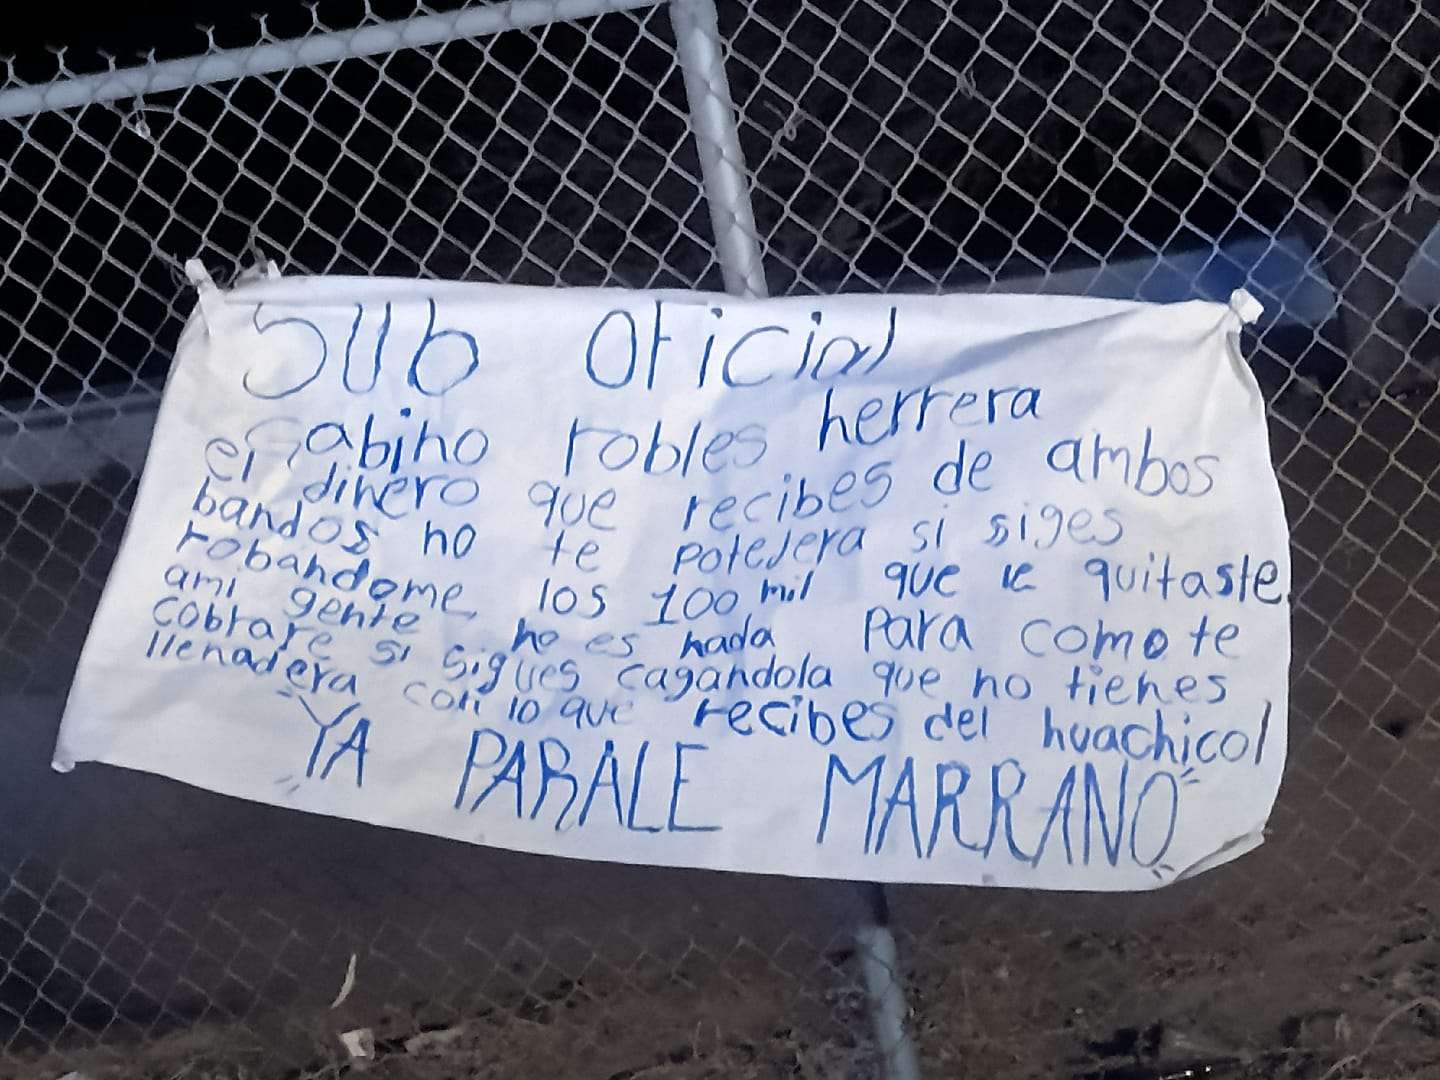 SUb Oficial
Gabino robles herrera
el dinero que recibes de ambos
bandos no te potejera si siges
robandome los 100 mil que le quitaste
ami gente no es nada Para como te
cobrare si sigues cagandola que no tienes
llenadera con lo que recibes del huachicol
"YA PARALE MARRANO"